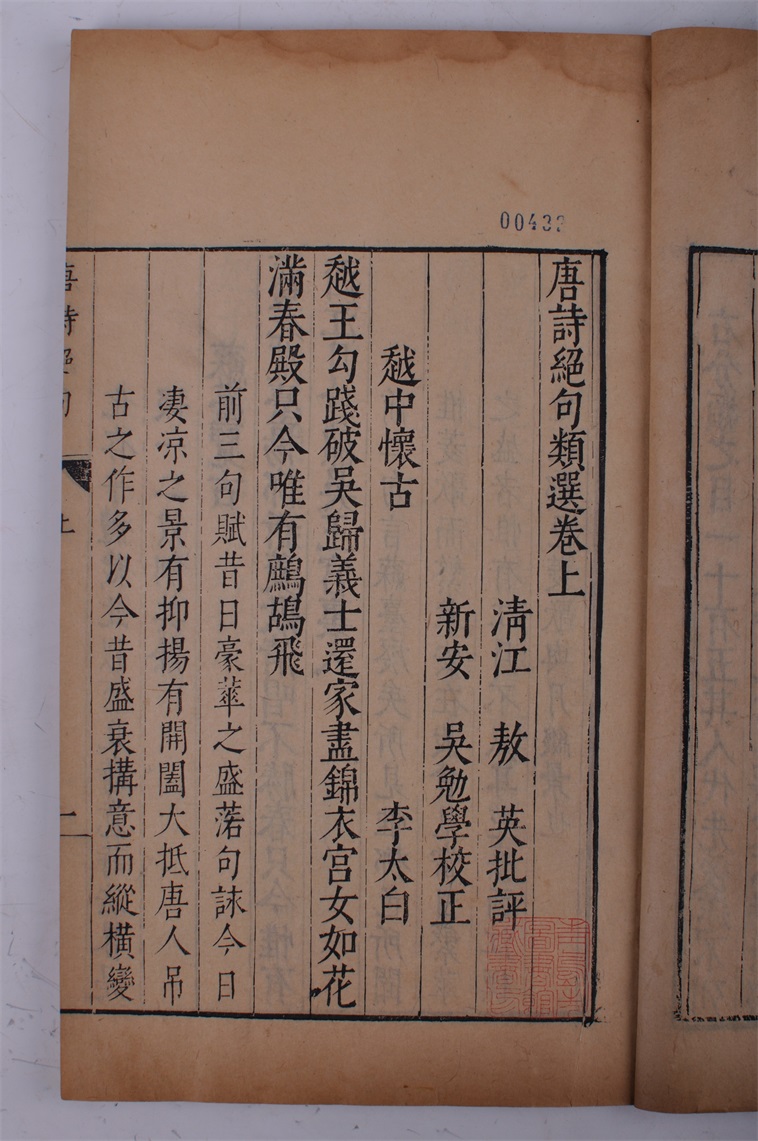 00433
唐詩絕句類選卷上
清江 敖 英批評
新安 吳勉學校正
越中懷古 李太白
越王勾踐破吳歸義士還家盡錦衣宮女如花
滿春殿只今唯有鷓鴣飛
前三句賦昔日豪華之盛落句詠今日
凄凉之景有抑揚有開闔大抵唐人吊
古之作多以今昔盛衰搆意而縱橫變
唐詩絕句 上 二